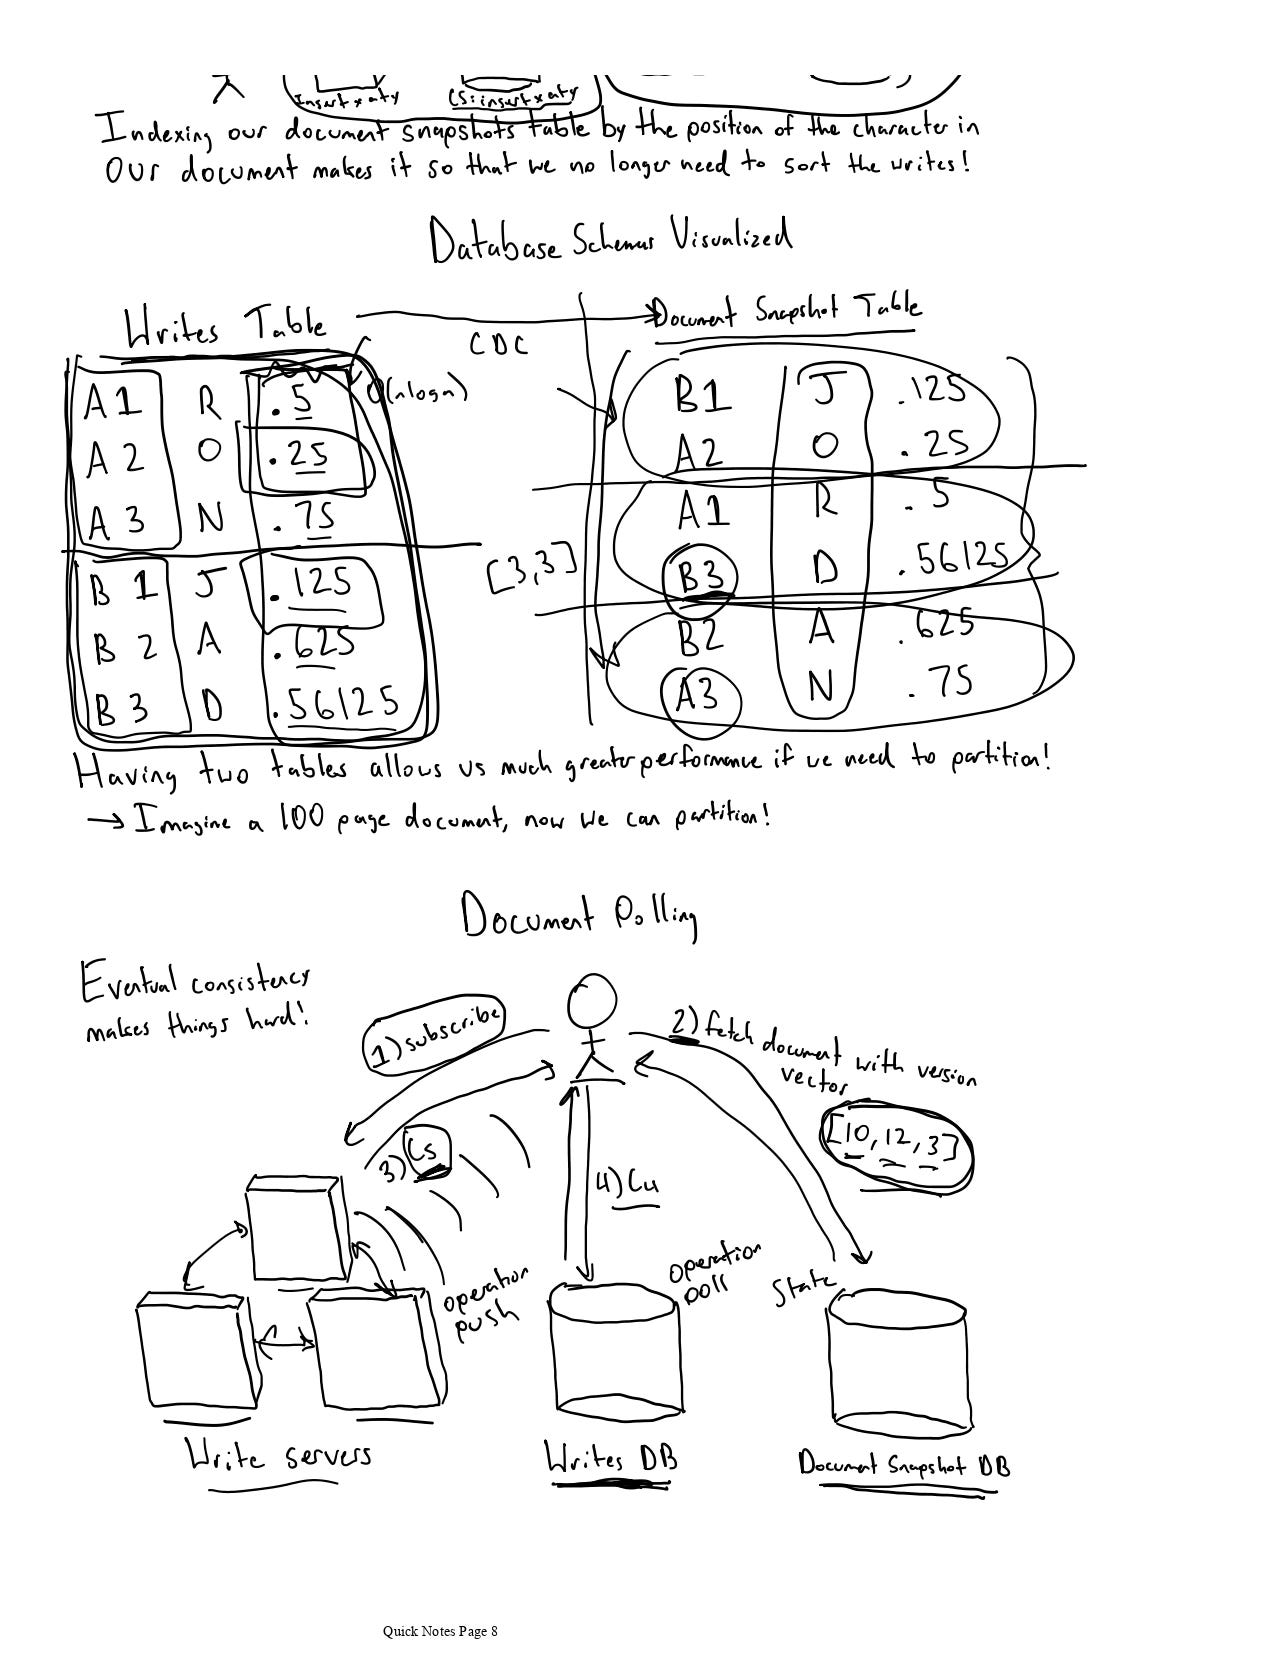 Insert x aty
CS: insert x aty
Indexing our document snapshots table by the position of the character in
our document makes it so that we no longer need to sort the writes!
Database Schemas Visualized
Writes Table
CDC
Document Snapshot Table
O(nlogn)
A1 R .5
A2 O .25
A3 N .75
B1 J .125
B2 A .625
B3 D .56125
[3,3]
B1 J .125
A2 O .25
A1 R .5
B3 D .56125
B2 A .625
A3 N .75
Having two tables allows us much greater performance if we need to partition!
→ Imagine a 100 page document, now we can partition!
Document Polling
Eventual consistency
makes things hard!
1) subscribe
2) fetch document with version
vector
[10, 12, 3]
3) Cs
4) Cu
operation
push
operation
poll
State
Write servers
Writes DB
Document Snapshot DB
Quick Notes Page 8